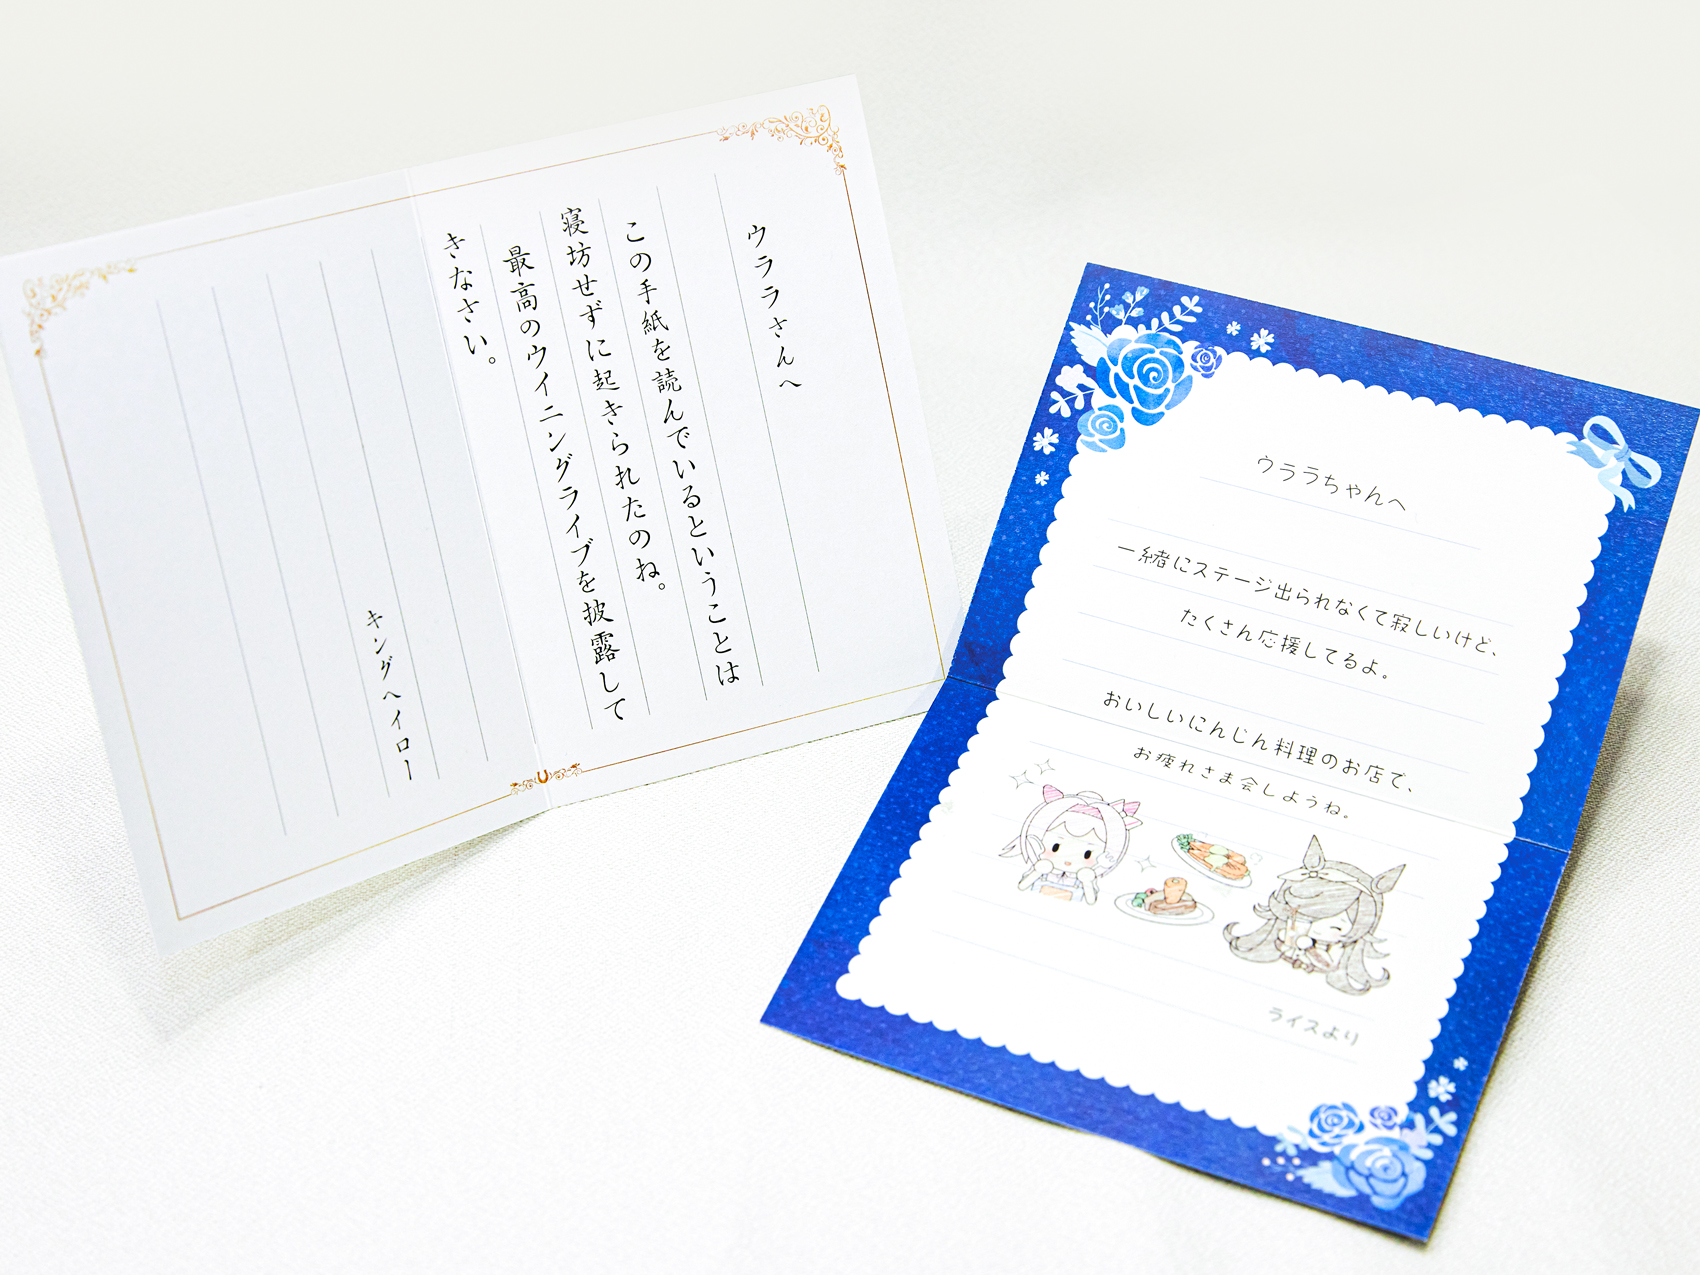 ウララさんへ
この手紙を読んでいるということは
寝坊せずに起きられたのね。
最高のウイニングライブを披露して
きなさい。
キングヘイロー
ウララちゃんへ
一緒にステージ出られなくて寂しいけど、
たくさん応援してるよ。
おいしいにんじん料理のお店で、
お疲れさま会しようね。
ライスより